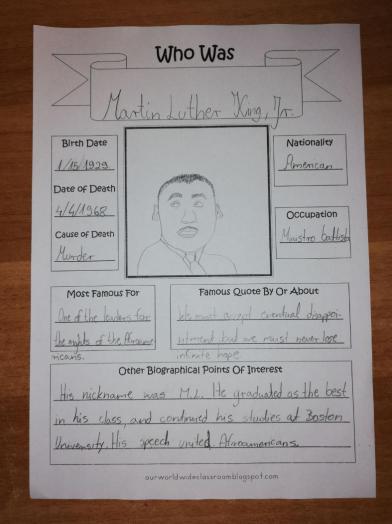 Who Was
Martin Luther King, Jr.
Birth Date
1/15/1929
Date of Death
4/4/1968
Cause of Death
Murder
Nationality
American
Occupation
Ministro battista
Most Famous For
One of the leaders for
the rights of the Afroame
ricans.
Famous Quote By Or About
We must accept eventual disappoi-
ntment but we must never lose
infinite hope
Other Biographical Points Of Interest
His nickname was M.L. He graduated as the best
in his class, and continued his studies at Boston
University. His speech united Afroamericans.
ourworldwideclassroom.blogspot.com